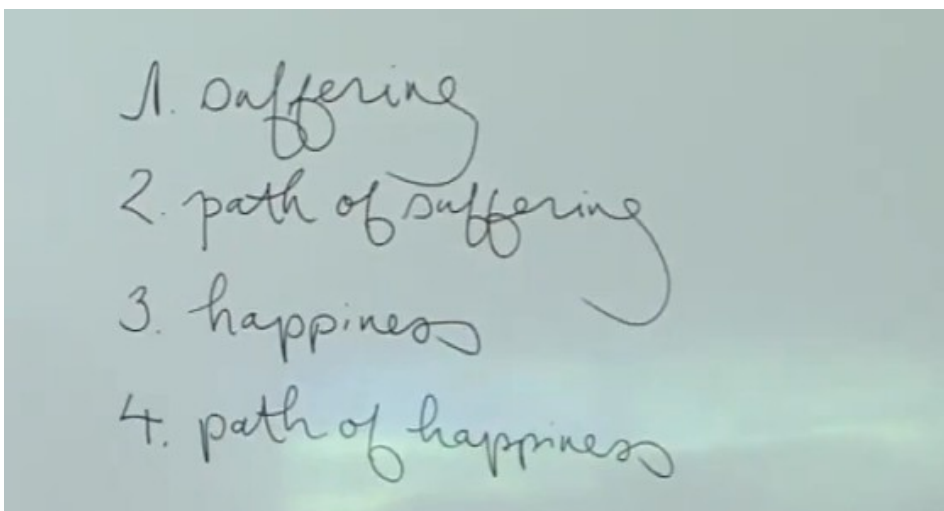 1. suffering
2. path of suffering
3. happiness
4. path of happiness